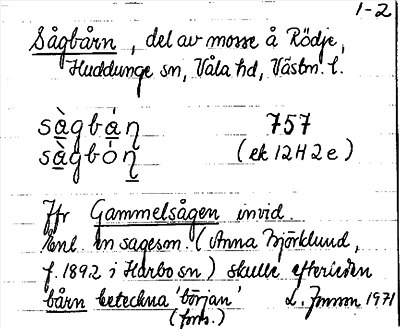 1-2
Sågbårn, del av mosse å Rödje,
Huddunge sn, Våla hd, Västm. l.
sàgbán 757
sàgbón (ek 12H2e)
Jfr Gammelsågen invid.
Enl. en sagesm. (Anna Björklund,
f. 1892 i Harbo sn.) skulle efterleden
bårn beteckna 'början' 1971
(forts.)